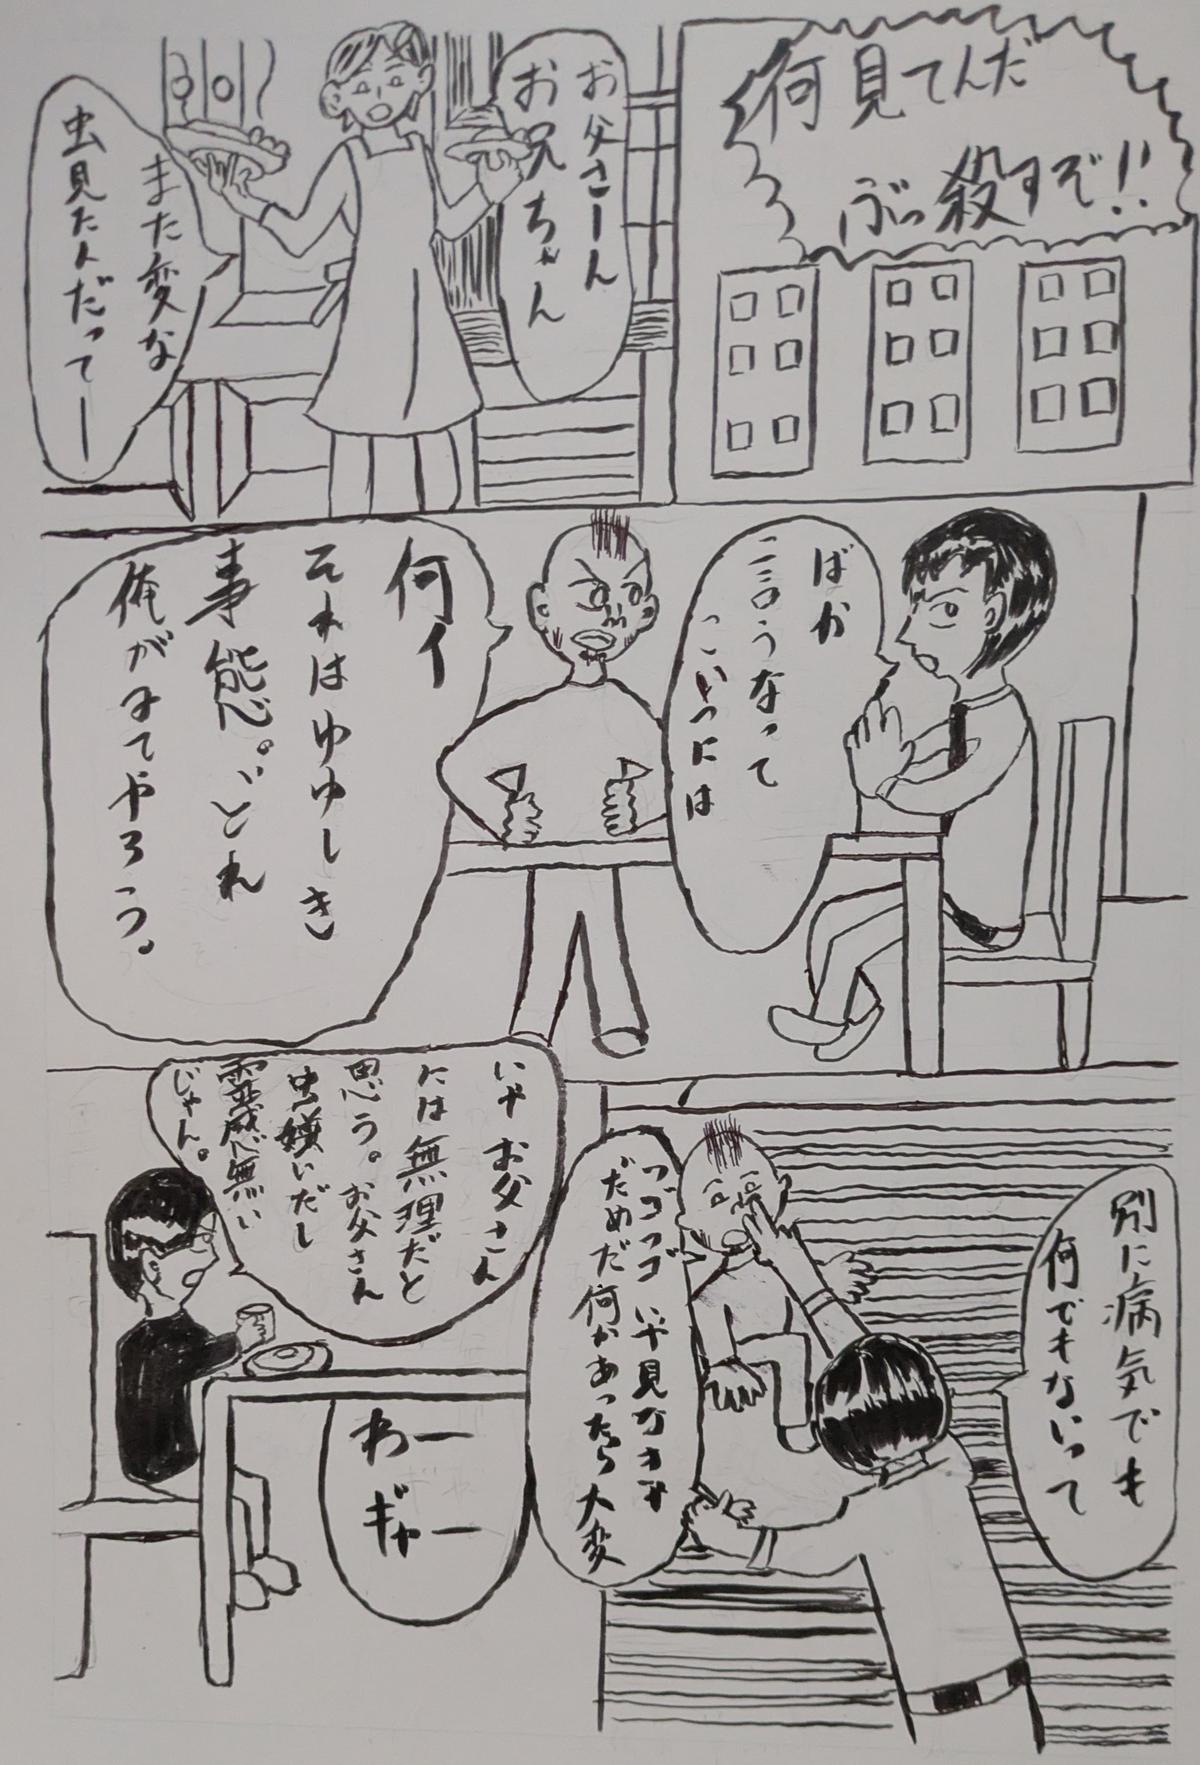 何見てんだ
ぶっ殺すぞ!!
お父さーん
お兄ちゃん
また変な
虫見たんだってー
ばか
言うなって
こいつには
何イ
それはゆゆしき
事態。どれ
俺がみてやろう。
別に病気でも
何でもないって
フゴフゴいや見なきゃ
だめだ何かあったら大変
いやお父さん
には無理だと
思う。お父さん
虫嫌いだし
霊感無い
じゃん。
わー
ギャー